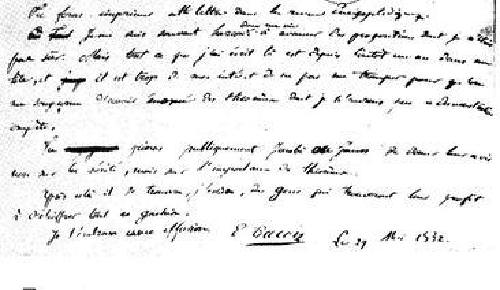 Tu feras imprimer cette lettre dans la revue Encyclopédique.
Je me suis souvent hasardé dans ma vie à avancer des propositions dont je n'étais
pas sûr. Mais tout ce que j'ai écrit là est depuis bientôt un an dans ma
tête, et il est trop de mon intérêt de ne pas me tromper pour qu'on
me soupçonne d'avoir énoncé des théorèmes dont je n'aurais pas la démonstration
complète.
Tu prieras publiquement Jacobi ou Gauss de donner leur avis
non sur la vérité, mais sur l'importance des théorèmes.
Après cela il se trouvera, j'espère, des gens qui trouveront leur profit
à déchiffrer tout ce gâchis.
Je t'embrasse avec effusion. E Galois Le 29 Mai 1832.